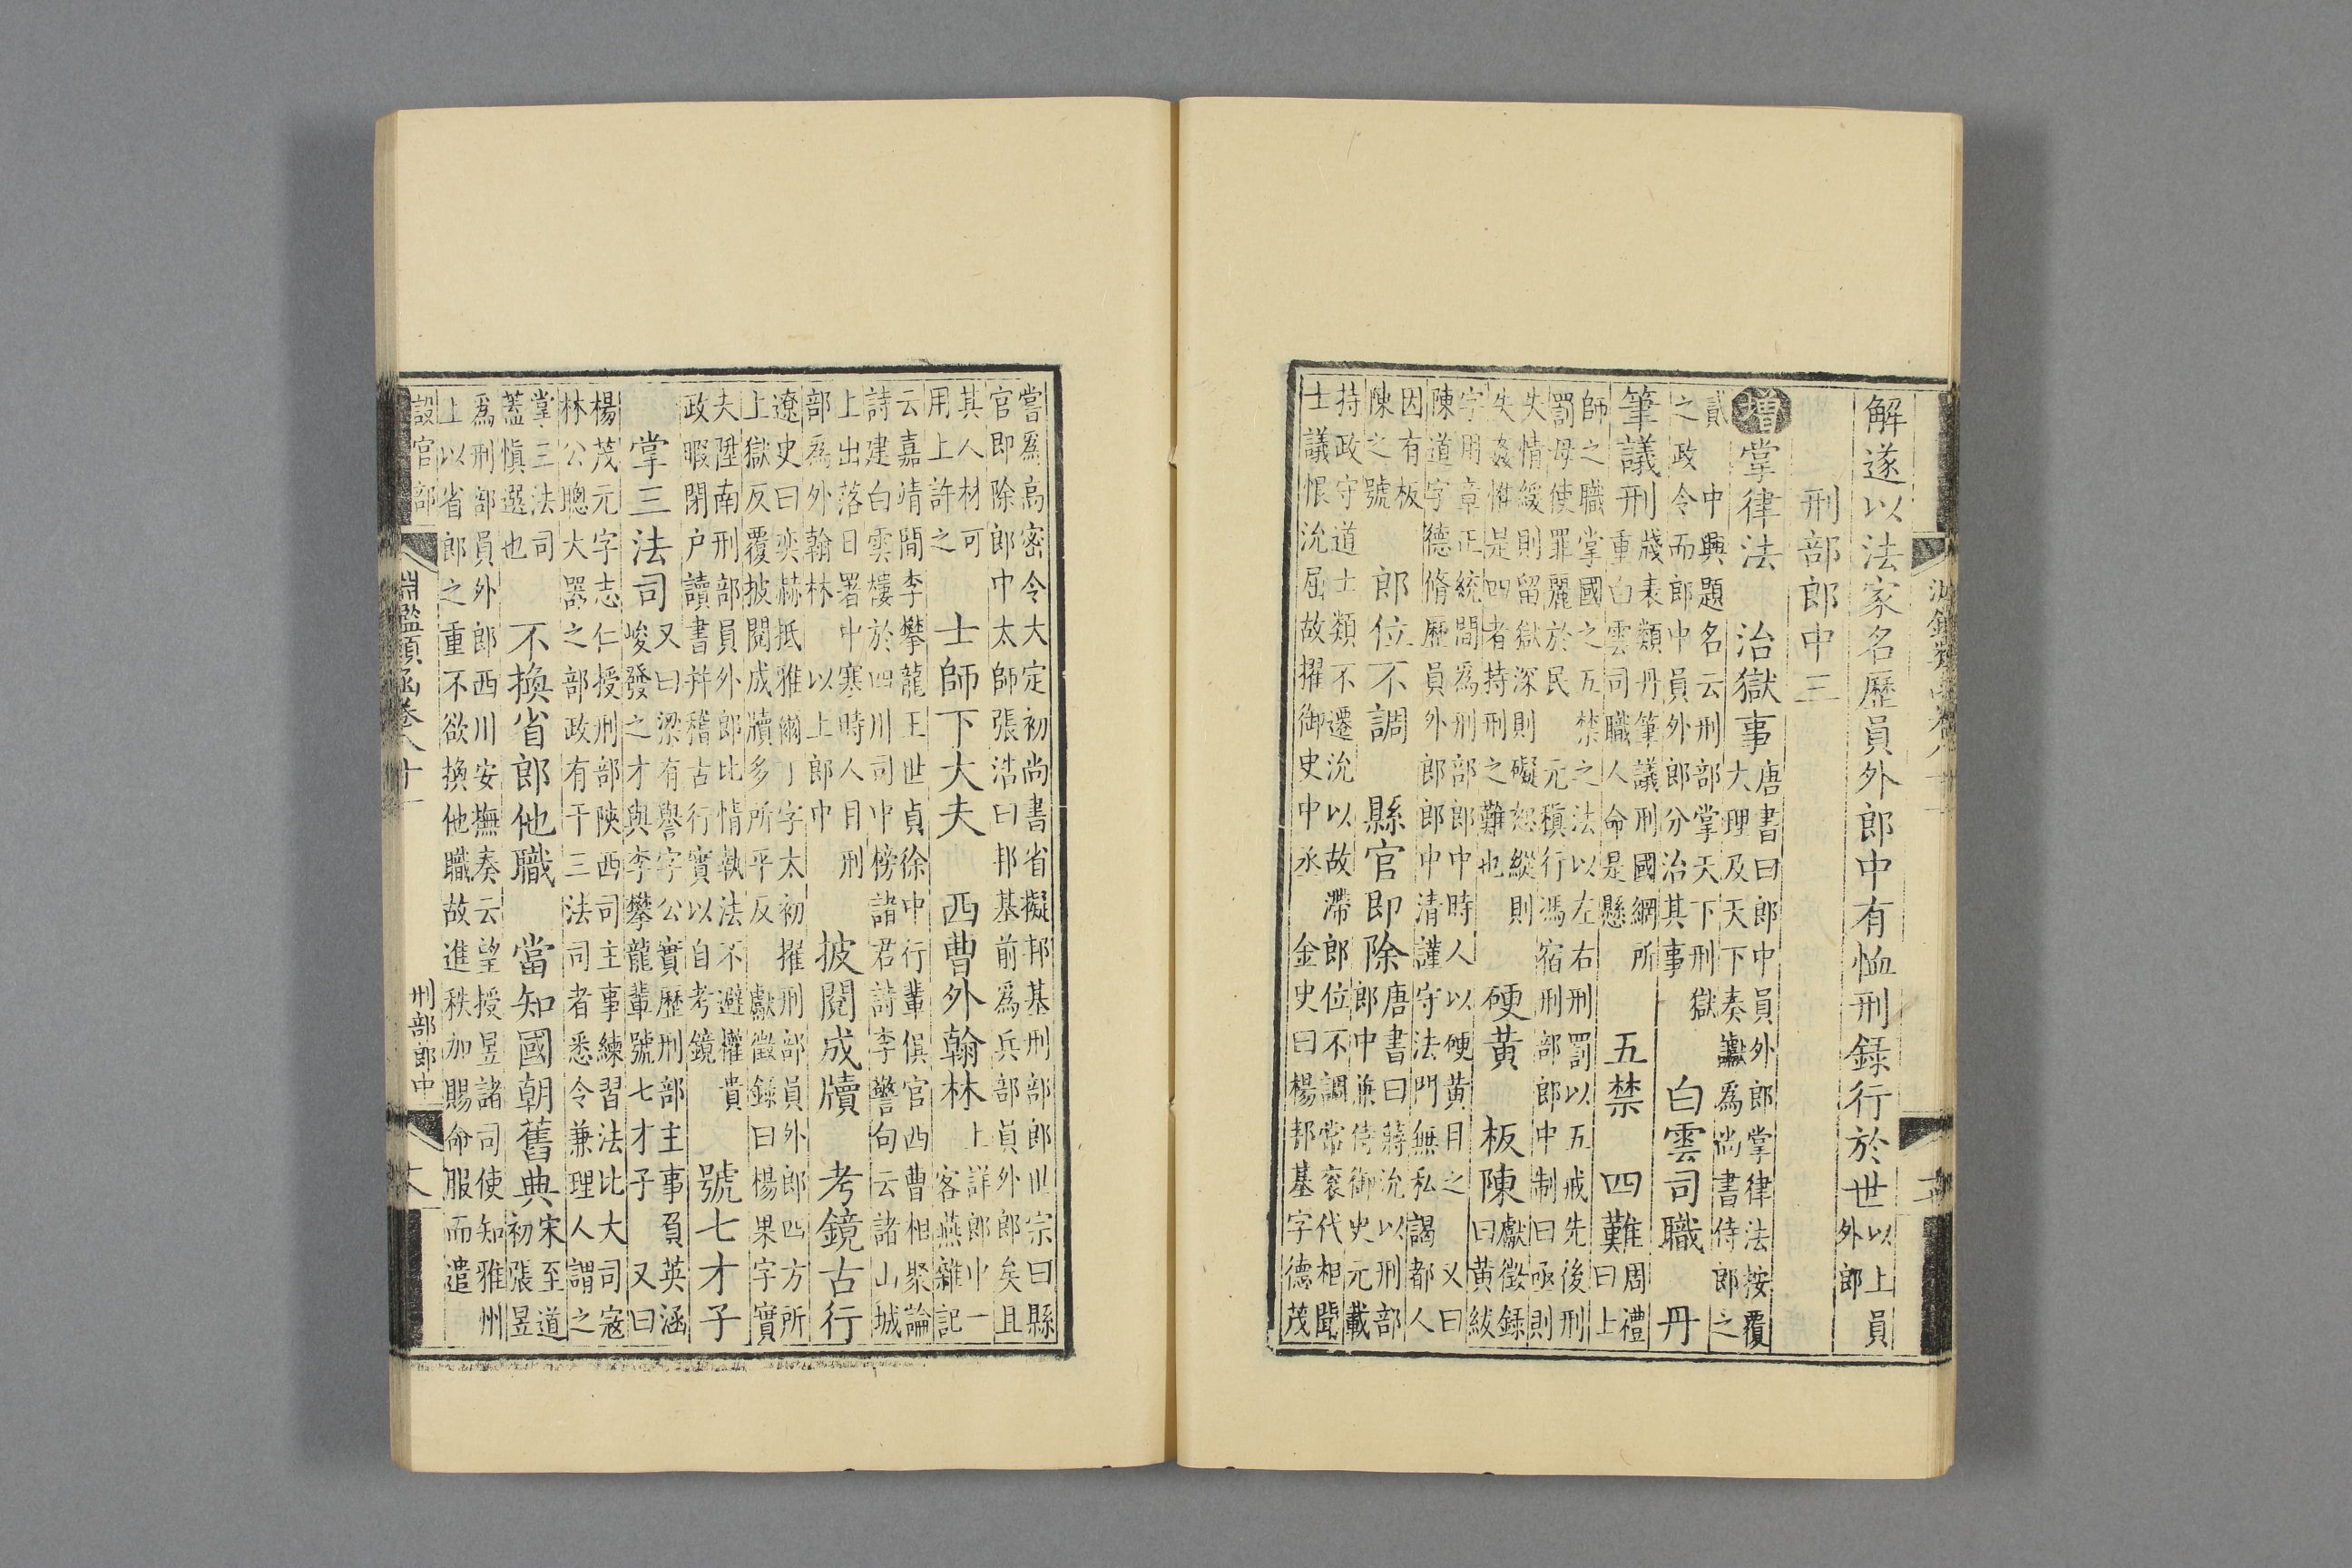 解遂以法家名歷員外郎中有恤刑錄行於世以上員外郎
刑部郎中三
增掌律法 治獄事唐書曰郎中員外郎掌律法按覆大理及天下奏讞爲尚書侍郎之
貳 中興題名云刑部掌天下刑獄之政令而郎中員外郎分治其事 白雲司職 丹
筆議刑牋表類丹筆議刑國網所重白雲司職人命是懸 五禁 四難周禮曰上
師之職掌國之五禁之法以左右刑罰以五戒先後刑罰母使罪麗於民 元稹行馮宿刑部郎中制曰亟則
失情緩則留獄深則礙恕縱則失姦惟是四者持刑之難也 硬黃 板陳獻徵錄曰黃紱
字用章正統間爲刑部郎中時人以硬黃目之 又曰陳道字德脩歷員外郎郎中清謹守法門無私謁都人
因有板陳之號 郎位不調 縣官即除唐書曰蔣沇以刑部郎中兼侍御史元載
持政守道士類不遷沇以故滯郎位不調常袞代相聞士議恨沇屈故擢御史中丞 金史曰楊邦基字德茂
嘗爲高密令大定初尚書省擬邦基刑部郎世宗曰縣官即除郎中太師張浩曰邦基前爲兵部員外郎矣且
其人材可用上許之 士師下大夫 西曹外翰林上詳郎中一 客燕雜記
云嘉靖間李攀龍王世貞徐中行輩俱官西曹相聚論詩建白雲樓於四川司中榜諸君詩李警句云諸山城
上出落日署中寒時人目刑部爲外翰林 以上郎中 披閱成牘 考鏡古行
遼史曰奕赫抵雅爾丁字太初擢刑部員外郎四方所上獄反覆披閱成牘多所平反 獻徵錄曰楊果字實
夫陞南刑部員外郎比情執法不避權貴政暇閉户讀書幷稽古行實以自考鏡 號七才子
掌三法司又曰梁有譽字公實歷刑部主事負英涵峻發之才與李攀龍輩號七才子 又曰
楊茂元字志仁授刑部陝西司主事練習法比大司寇林公聰大器之部政有干三法司者悉令兼理人謂之
掌三法司蓋愼選也 不換省郎他職 當知國朝舊典宋至道初張昱
爲刑部員外郎西川安撫奏云望授昱諸司使知雅州上以省郎之重不欲換他職故進秩加賜命服而遣
設官部 淵鑑類函卷八十一 刑部郎中